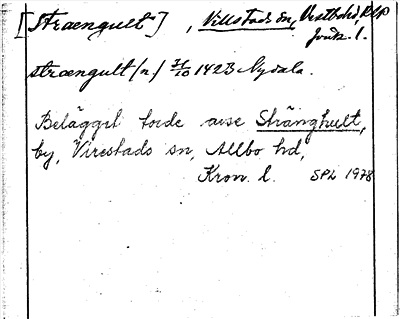 [Strængult], Villstads sn, Västbo hd,
Jönk. l.
strængult (n.) 31/10 1423 Nydala.
Belägget torde avse Stränghult,
by, Virestads sn, Allbo hd,
Kron. l. SPL 1978